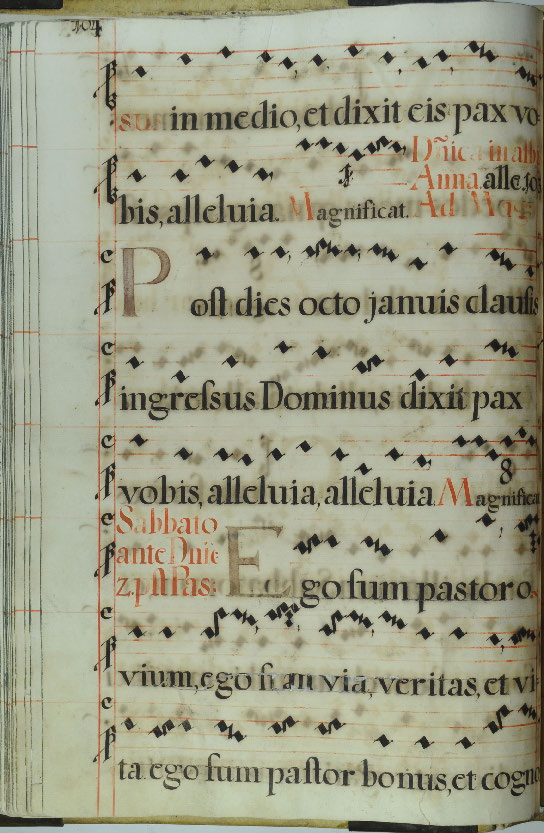 104
sum in medio, et dixit eis pax vo-
bis, alleluia. Magnificat. Dñica in alb
Anna. alle. Jo
Ad Mag
Post dies octo januis clausis
ingressus Dominus dixit pax
vobis, alleluia, alleluia. Magnificat
8
Sabbato
ante Dñic
2. pst Pas.
Ego sum pastor o
vium, ego sum via, veritas, et vi
ta ego sum pastor bonus, et cogno